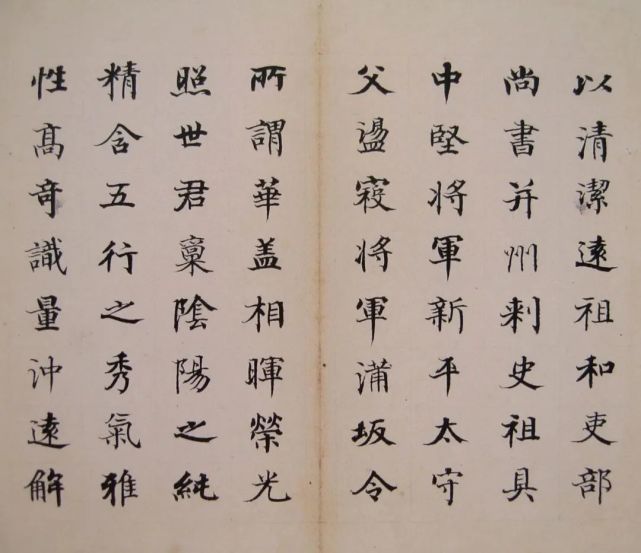 以清潔遠祖和吏部
尚書并州刺史祖具
中堅将軍新平太守
父盪寇将軍蒲坂令
所謂華盖相暉榮光
照世君稟陰陽之純
精含五行之秀氣雅
性高奇識量沖遠解